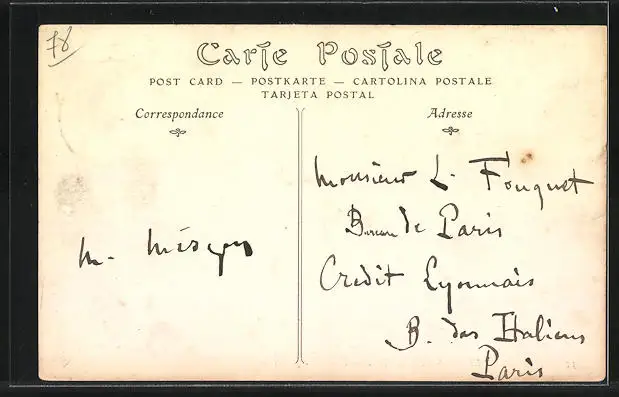 78
Carte Postale
POST CARD — POSTKARTE — CARTOLINA POSTALE
TARJETA POSTAL
Correspondance
Adresse
Monsieur L. Fouquet
Bureau de Paris
Credit Lyonnais
B. des Italiens
Paris
M.